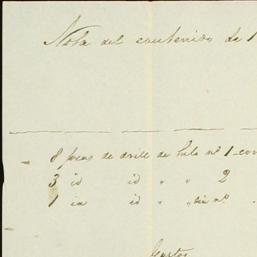 Nota del contenido de 1
8 piezas de drile de hilo nº 1 con
3 id id " " 2
1 id id " " sin nº
Gastos